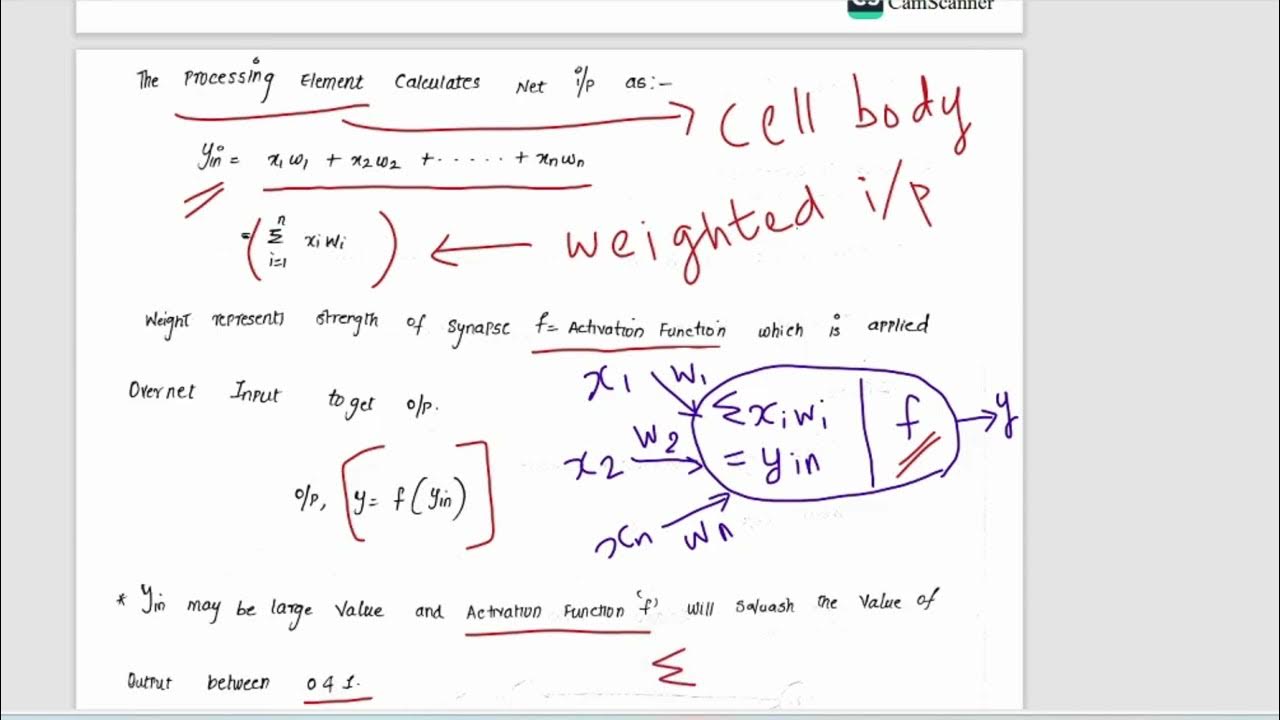 CamScanner
The Processing Element Calculates Net i/p as:-
cell body
yin = x₁w₁ + x₂w₂ + ...... + xnwn
= ( Σ xiwi )
n
i=1
← weighted i/p
Weight represents strength of synapse f = Activation Function which is applied
Over net Input to get o/p.
x₁ w₁
x₂ w₂
xn wn
Σxiwi
= yin
f
y
o/p, [y = f(yin)]
* Yin may be large value and Activation Function 'f' will squash the value of
Output between 0 & 1.
Σ